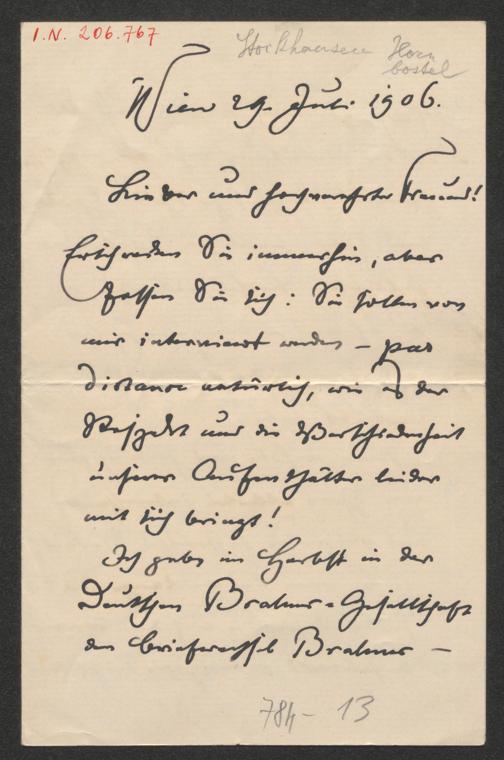 I.N. 206.767
Stockhausen Horn
bostel
Wien 29. Juli 1906.
Lieber und hochverehrter Freund!
Erschrecken Sie immerhin, aber
fassen Sie sich: Sie sollen von
mir interviewt werden – par
distance natürlich, wie es der
Respekt und die Verschiedenheit
unserer Aufenthälter leider
mit sich bringt!
Ich gebe im Herbst in der
Deutschen Brahms-Gesellschaft
den Briefwechsel Brahms –
784 – 13